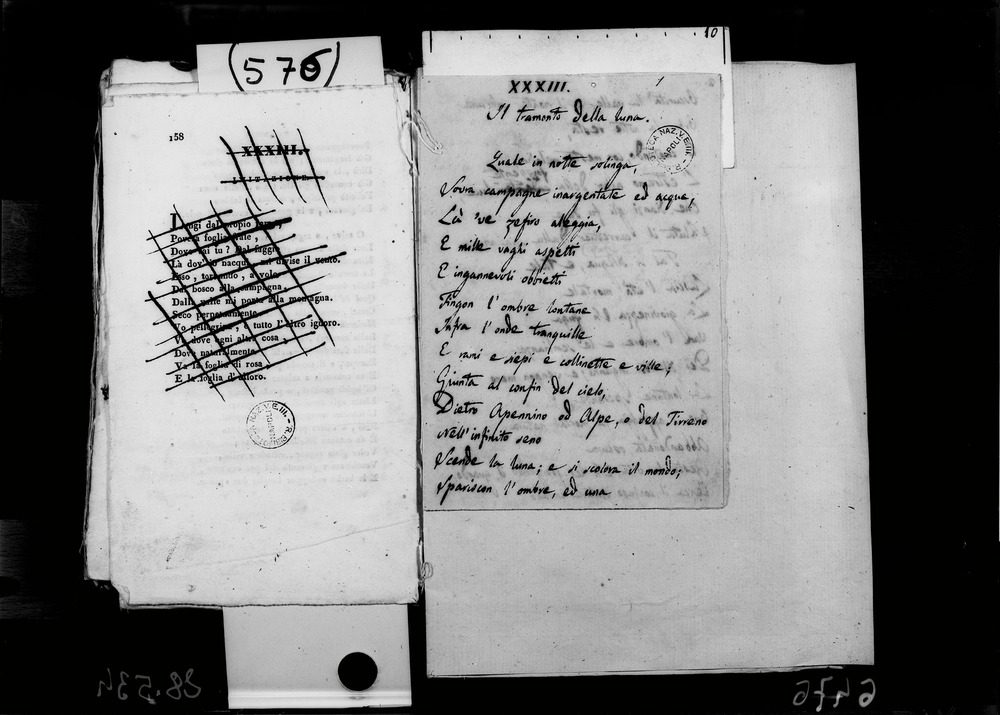 (576)
158
XXXIII.
IMITAZIONE.
Lungi dal proprio ramo,
Povera foglia frale,
Dove vai tu? Dal faggio
Là dov'io nacqui, mi divise il vento.
Esso, tornando, a volo
Dal bosco alla campagna,
Dalla valle mi porta alla montagna.
Seco perpetuamente
Vo pellegrina, e tutto l'altro ignoro.
Vo dove ogni altra cosa,
Dove naturalmente
Va la foglia di rosa,
E la foglia d'alloro.
10
XXXIII.
Il tramonto della luna.
Quale in notte solinga,
Sovra campagne inargentate ed acque,
Là 've zefiro aleggia,
E mille vaghi aspetti
E ingannevoli obbietti
Fingon l'ombre lontane
Infra l'onde tranquille
E rami e siepi e collinette e ville;
Giunta al confin del cielo,
Dietro Apennino od Alpe, o del Tirreno
Nell'infinito seno
Scende la luna; e si scolora il mondo;
Spariscon l'ombre, ed una
28.534
6476